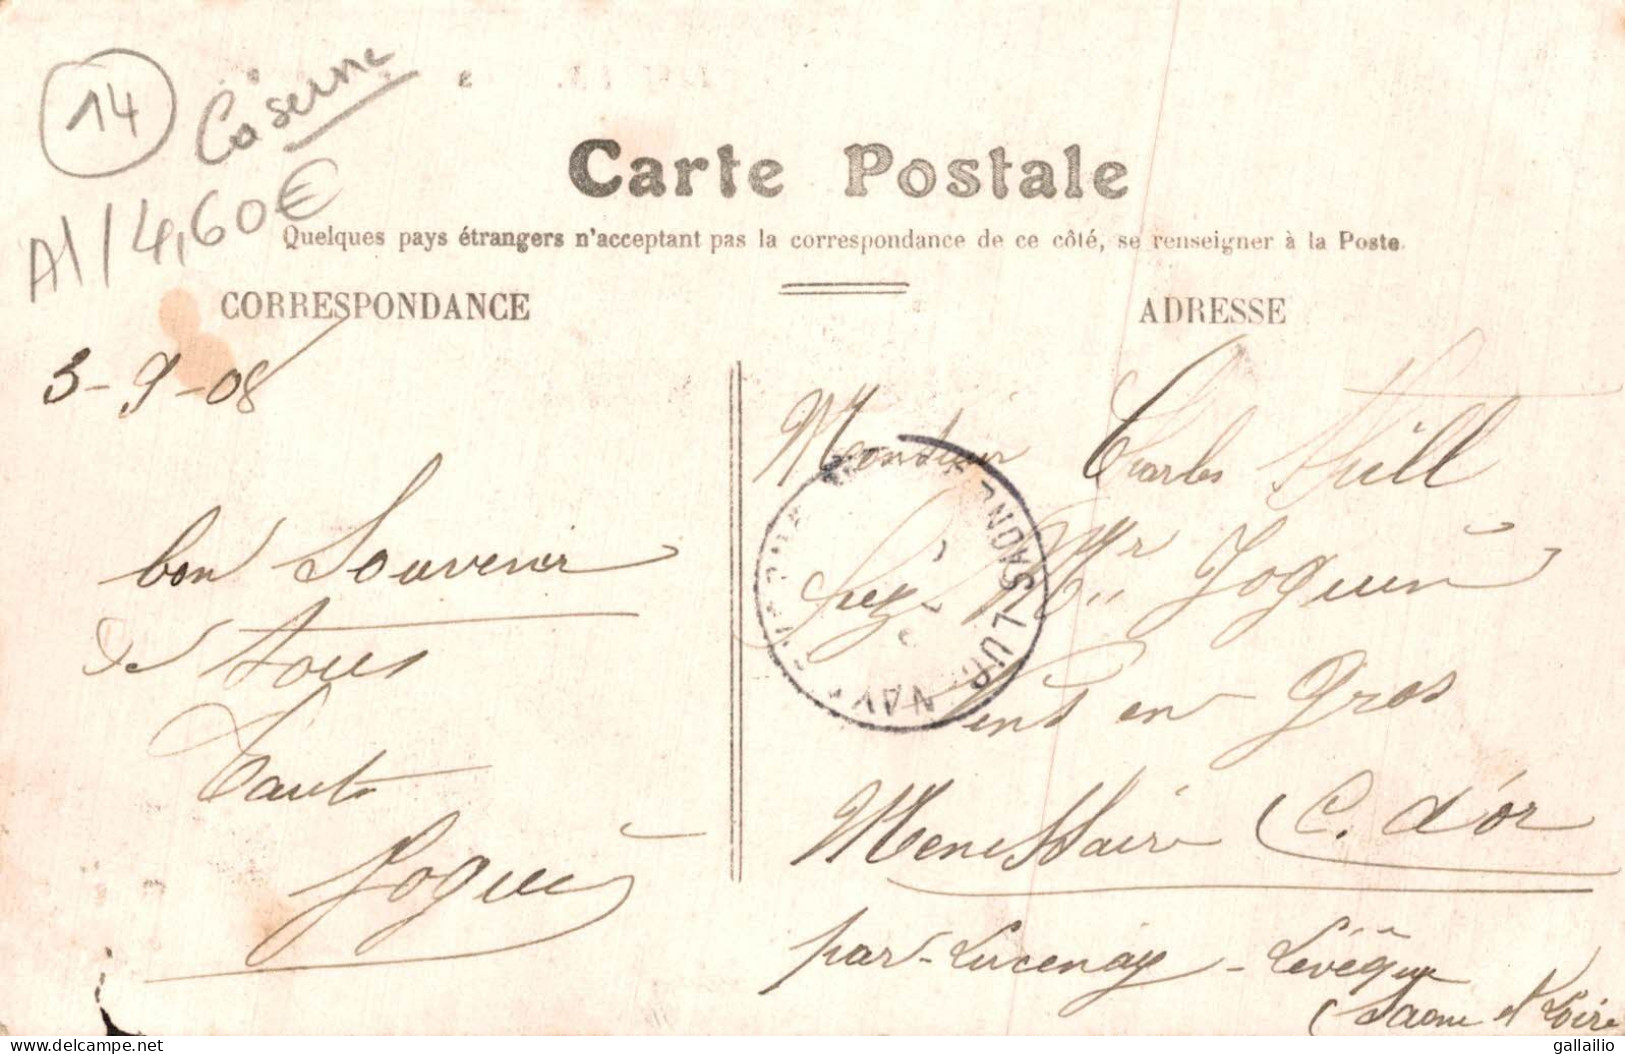 14
Caserne
A1/4,60€
Carte Postale
Quelques pays étrangers n'acceptant pas la correspondance de ce côté, se renseigner à la Poste.
CORRESPONDANCE
3-9-08
bon Souvenir
de tous
Joguin
ADRESSE
Monsieur Charles
Chez Mr Joguin
Vins en Gros
Menessaire C. d'or
par-Lucenay-Lévêque
(Saone et Loire
SAONE
gallailio
delcampe.net